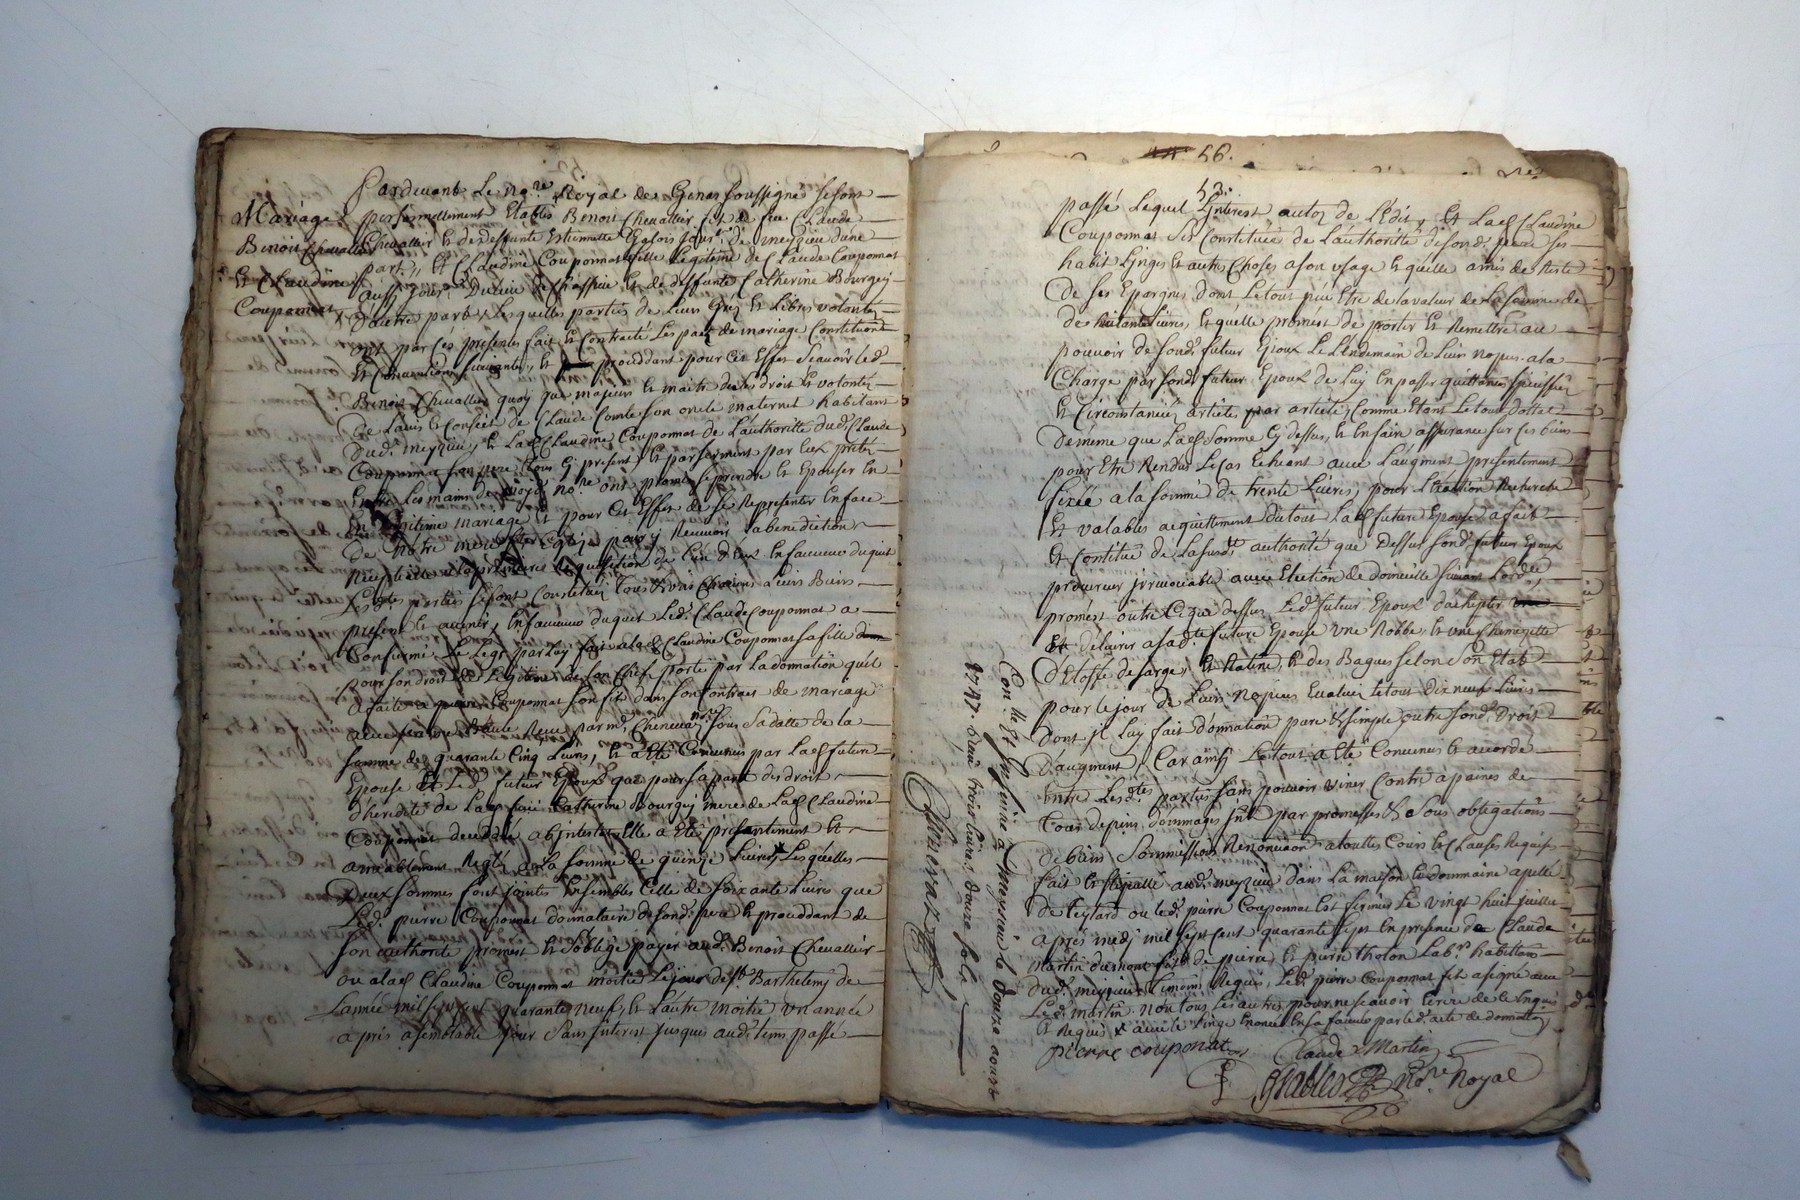 Mariage
Benoit Chevallier
et Claudine
Couponnat
Pardevant Le No.re Royal de Genas soussigné se sont
personnellement Etablis Benoit Chevallier fils de feu Claude
Chevallier et de deffunte Estiennette jour.t de meyzieu d'une
part, et Claudine Couponnat fille Legitime de Claude Couponnat
aussy jour.t et de deffunte Catherine Bourgey
d'autre part, Lesquelles parties de Leurs Grez et Libres volontez
ont par Ces presentes fait et Contracté Les pact de mariage Constitution
et Conventions suivantes, et proceddant pour Cet Effet scavoir le d.
Benoit Chevallier quoy que majeur et maitre de ses droit et volontez
de L'avis et Conseils de Claude Comte son oncle maternel habitant
dud. meyzieu, et Lad. Claudine Couponnat de L'authorité dud. Claude
Couponnat son pere tous Cy present, et par serment par Eux prêté
Entre Les mains de moyd. No.re ont promis se prendre et Epouser En
En Legitime mariage et pour Cet Effet de se Representer En face
de Notre mere S.te Eglise pour y Recevoir La benediction
Nuptialle a La premiere Requisition de L'un d'eux En faveur duquel
Les d.tes parties se sont Constituéz tous et uns Chacuns Leurs Biens
present et avenir, En faveur duquel Led. Claude Couponnat a
Confirmé Le Legs par Luy fait a lad. Claudine Couponnat sa fille
pour son droit de Legitime de son Chef porté par La donnation qu'il
a faite a pierre Couponnat son fils dans son Contrat de mariage
avec Reçu par m.e no.re sous Sa datte de la
somme de quarante Cinq Livres, et a Eté Convenus par Lad. future
Epouse et Led. futur Epoux que pour sa part des droit
d'heredité de Lad. feüe Catherine Bourgey mere de Lad. Claudine
Couponnat deceddée abintestat Elle a Eté presantement et
amiablement Reglé a La somme de quinze Livres, Lesquelles
Deux sommes font jointe Ensembles Celle de soixante Livres que
Led. pierre Couponnat donnataire de sond. pere et proceddant de
son authorité promest et s'oblige payer aud. Benoit Chevallier
ou a lad. Claudine Couponnat moitié Le jour de s.t Barthelemy de
L'année mil sept cent quarante neuf, et L'autre moitié un année
apres a semblable jour Sans interest jusques aud. tems passé
56.
53.
passé Lequel L'interest au taux de L'Edit, et Lad. Claudine
Couponnat s'est Constituée de L'authorité de sond. pere ses
habit Linges et autres Choses a son usage et qu'elle a mis de Reste
De ses Epargnes dont Le tout peu Etre de la valeur de La somme de
de huitante Livres, et qu'elle promest de porter et Remettre au
pouvoir de sond. futur Epoux Le L'endemain de Leurs Nopces a la
Charge par sond. futur Epoux de Luy En passer quittance speciffié
et Circonstancié article par article, Comme Etant Le tout dottal
de même que Lad. Somme Cy dessus, et En faire assurance sur ces biens
pour Etre Rendus Le Cas Echeant avec L'augment presentement
fixée a la somme de trente Livres, pour L'exaction Recherche
et valables acquittement du tout Lad. future Epouse a fait
et Constitué de La susd.te authorité que Dessus sond. futur Epoux
procureur jrrevocable avec Election de domicille suivant L'ord.ce
promest outre Ce que dessus Led. futur Epoux d'achepter
et delivrer a sad.te future Epouse une Robbe, et une Chemizette
D'Etoffe de sarge, et Ratine, et des Bagues selon Son Etat
pour le jour de Leurs Nopces Evaluez Le tout dix neuf Livres
Dont jl Luy fait donnation pure et simple outre sond. Droit
D'augment, Car ainsy Le tout a Eté Convenus et accorde
Entre Lesd.tes parties sans pouvoir venir Contre a paines de
tous depens dommages par promesses et Sous obligations
de biens Soummissions Renonciaon a toutes Cours et Clauses Requises
fait et stipullé aud. meyzieu dans La maison et doummaine apellé
De Teylard ou led. pierre Couponnat Est fermier Le vingt huit juillet
apres medj mil sept cent quarante sept En presence de Claude
martin dumont fils de pierre, et pierre tholon Lab.r habitans
dud. meyzieu temoins Requis, Led. pierre Couponnat fils a signé avec
Led. martin Non tous Les autres pour ne scavoir Ecrire de ce Enquis
et Requis
pierre couponat Claude Martin
No.re Royal
Con.lle et Insinué a Meyzieu le douze aoust
1747. Reçu trois livres douze sols